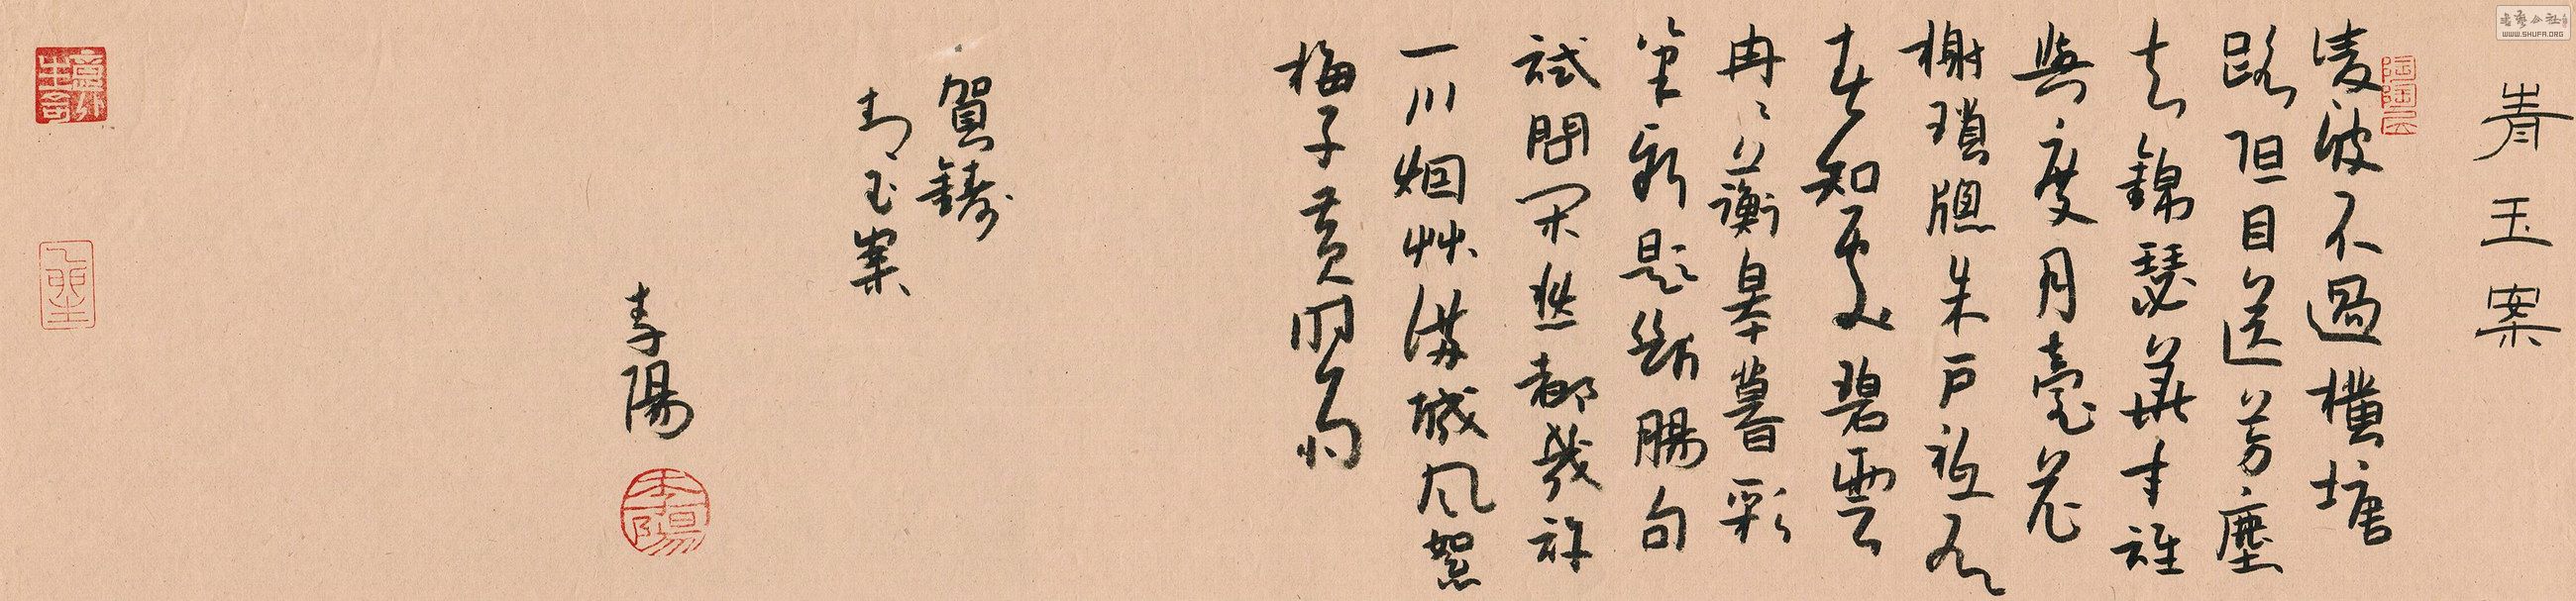 青玉案
凌波不過橫塘
路但目送芳塵
去錦瑟華年誰
與度月臺花
榭瑣牕朱戶祇有
春知處碧雲
冉冉蘅皋暮彩
筆新題斷腸句
試問閑愁都幾許
一川烟艸滿城風絮
梅子黃時雨
賀鑄
青玉案
陽
书艺公社
WWW.SHUFA.ORG